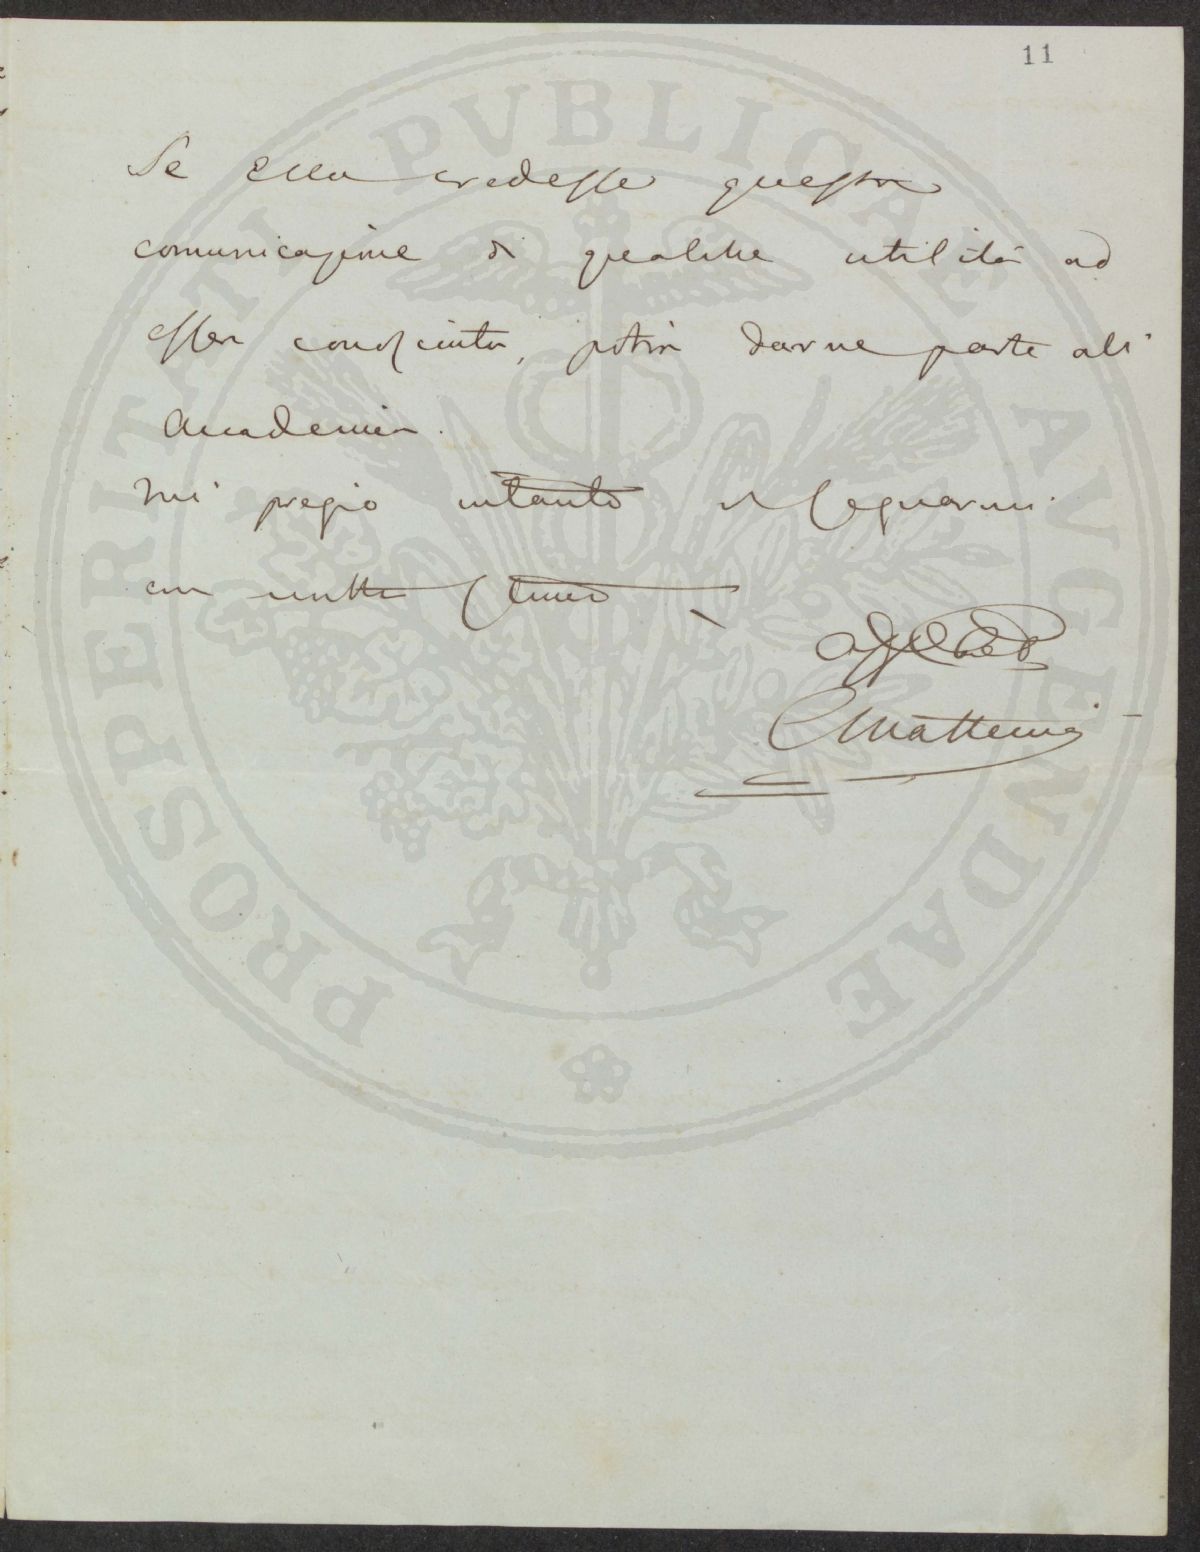 11
Se Ella credesse questa
comunicazione di qualche utilità ad
esser conosciuta, potrà darne parte all'
Accademia.
Mi pregio intanto di segnarmi
con molta stima
C Matteucci
PROSPERITATI PVBLICAE AVGENDAE